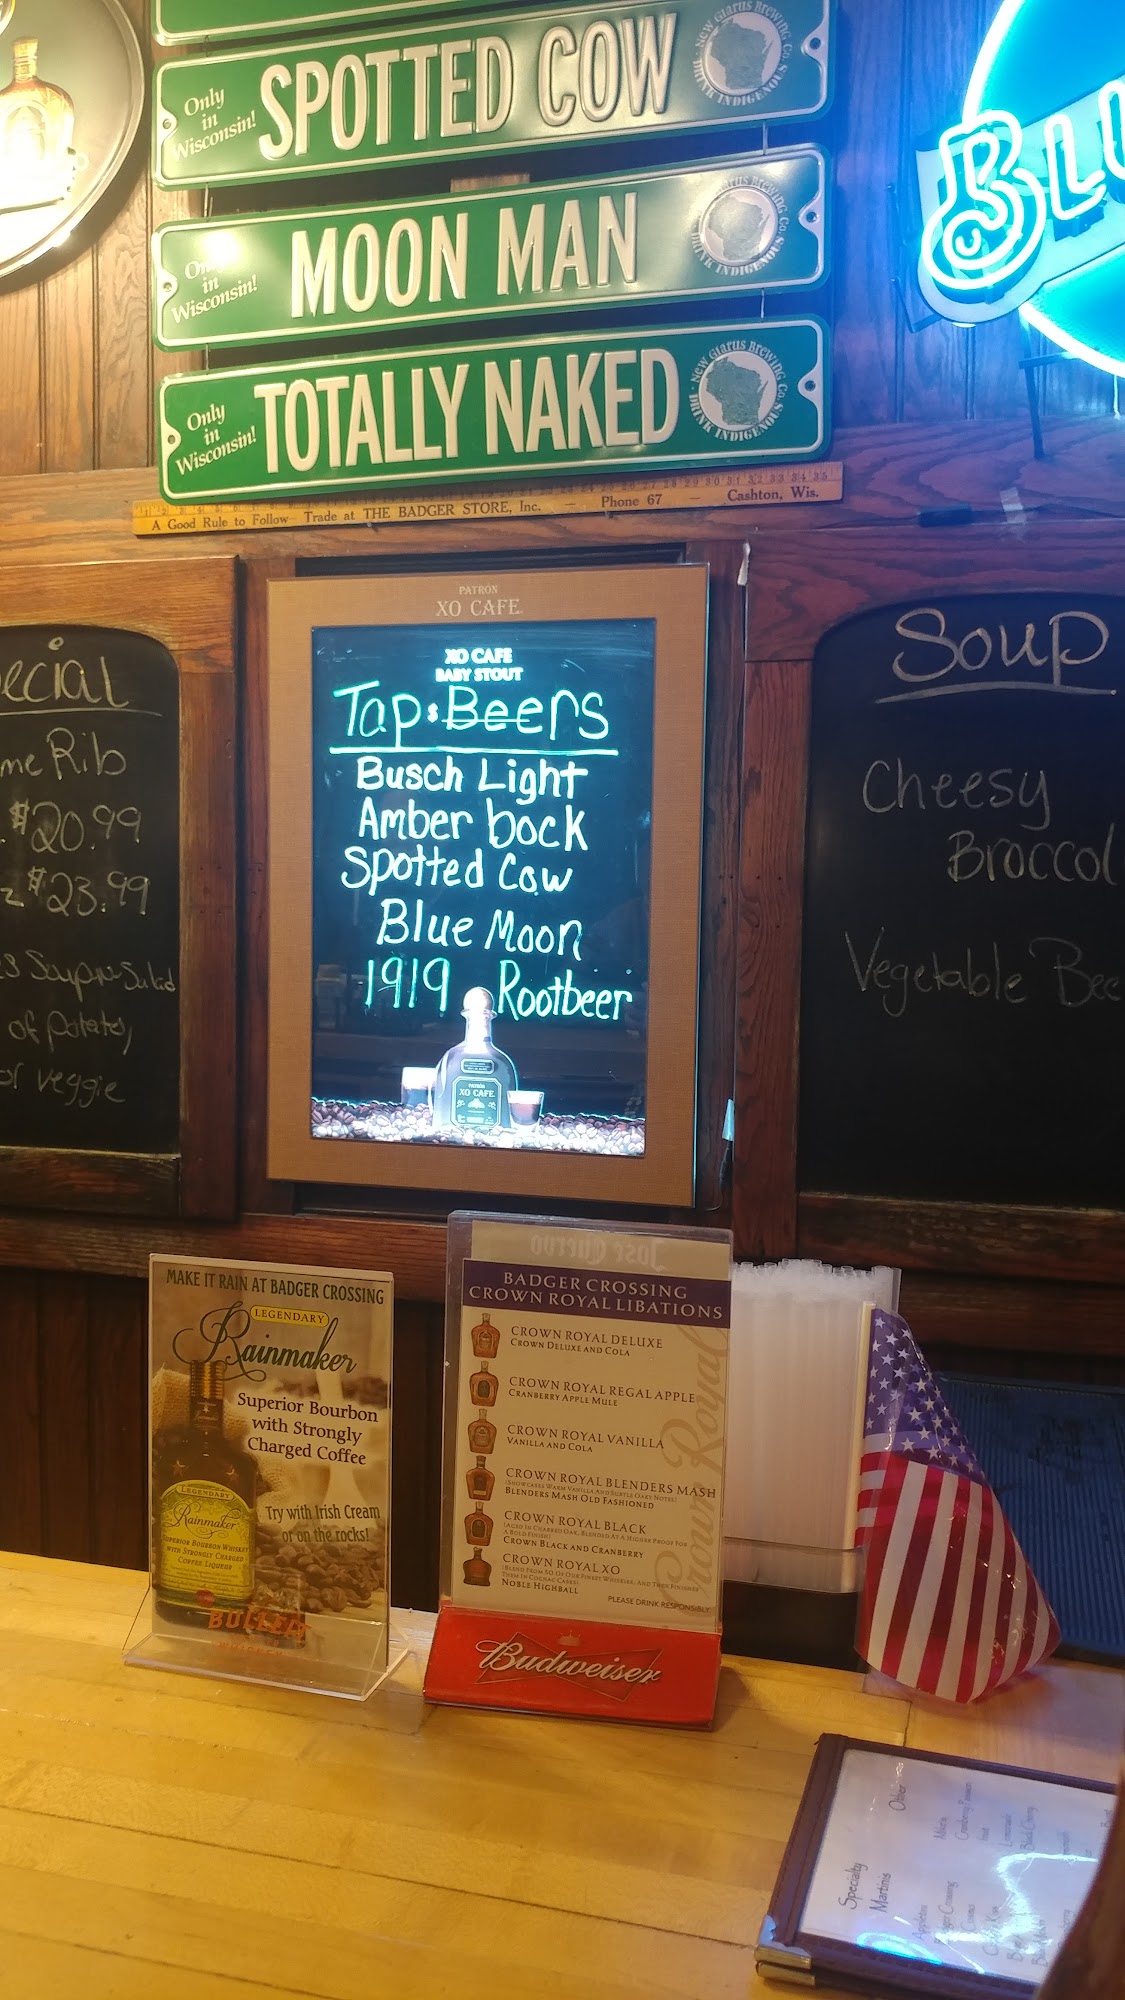 Only
in
Wisconsin!
SPOTTED COW
New Glarus Brewing Co.
DRINK INDIGENOUS
Only
in
Wisconsin!
MOON MAN
New Glarus Brewing Co.
DRINK INDIGENOUS
Only
in
Wisconsin!
TOTALLY NAKED
New Glarus Brewing Co.
DRINK INDIGENOUS
BLU
A Good Rule to Follow - Trade at THE BADGER STORE, Inc. - Phone 67 - Cashton, Wis.
ecial
me Rib
$20.99
z $23.99
Soup or Salad
of potato,
or veggie
PATRÓN
XO CAFE
XO CAFE
BABY STOUT
Tap Beers
Busch Light
Amber bock
Spotted Cow
Blue Moon
1919 Rootbeer
PATRÓN
XO CAFE
Soup
Cheesy
Broccol
Vegetable Bee
MAKE IT RAIN AT BADGER CROSSING
LEGENDARY
Rainmaker
Superior Bourbon
with Strongly
Charged Coffee
Try with Irish Cream
or on the rocks!
LEGENDARY
Rainmaker
SUPERIOR BOURBON WHISKEY
WITH STRONGLY CHARGED
COFFEE LIQUEUR
BULLEIT
Jose Cuervo
BADGER CROSSING
CROWN ROYAL LIBATIONS
CROWN ROYAL DELUXE
CROWN DELUXE AND COLA
CROWN ROYAL REGAL APPLE
CRANBERRY APPLE MULE
CROWN ROYAL VANILLA
VANILLA AND COLA
CROWN ROYAL BLENDERS MASH
(SHOWCASES WARM VANILLA AND SUBTLE OAKY NOTES)
BLENDERS MASH OLD FASHIONED
CROWN ROYAL BLACK
(AGED IN CHARRED OAK, BLENDED AT A HIGHER PROOF FOR
A BOLD FINISH)
CROWN BLACK AND CRANBERRY
CROWN ROYAL XO
(BLEND FROM 50 OF OUR FINEST WHISKIES, AND THEN FINISHED
THEM IN COGNAC CASKS)
NOBLE HIGHBALL
PLEASE DRINK RESPONSIBLY
Crown Royal
Budweiser
Specialty
Martinis
Other
Appletini
Badger Crossing
Cosmo